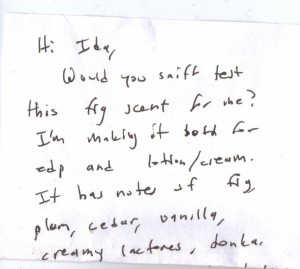 Hi Ida,
Would you sniff test
this fig scent for me?
I'm making it both for
edp and lotion/cream.
It has notes of fig
plum, cedar, vanilla,
creamy lactones, tonka.